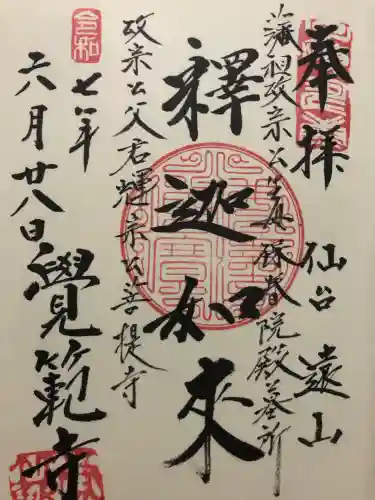 奉拝 仙台 遠山
藩祖政宗公生母保春院殿墓所
釋迦如来
政宗公父君輝宗公菩提寺
令和
七年
六月廿八日 覺範寺